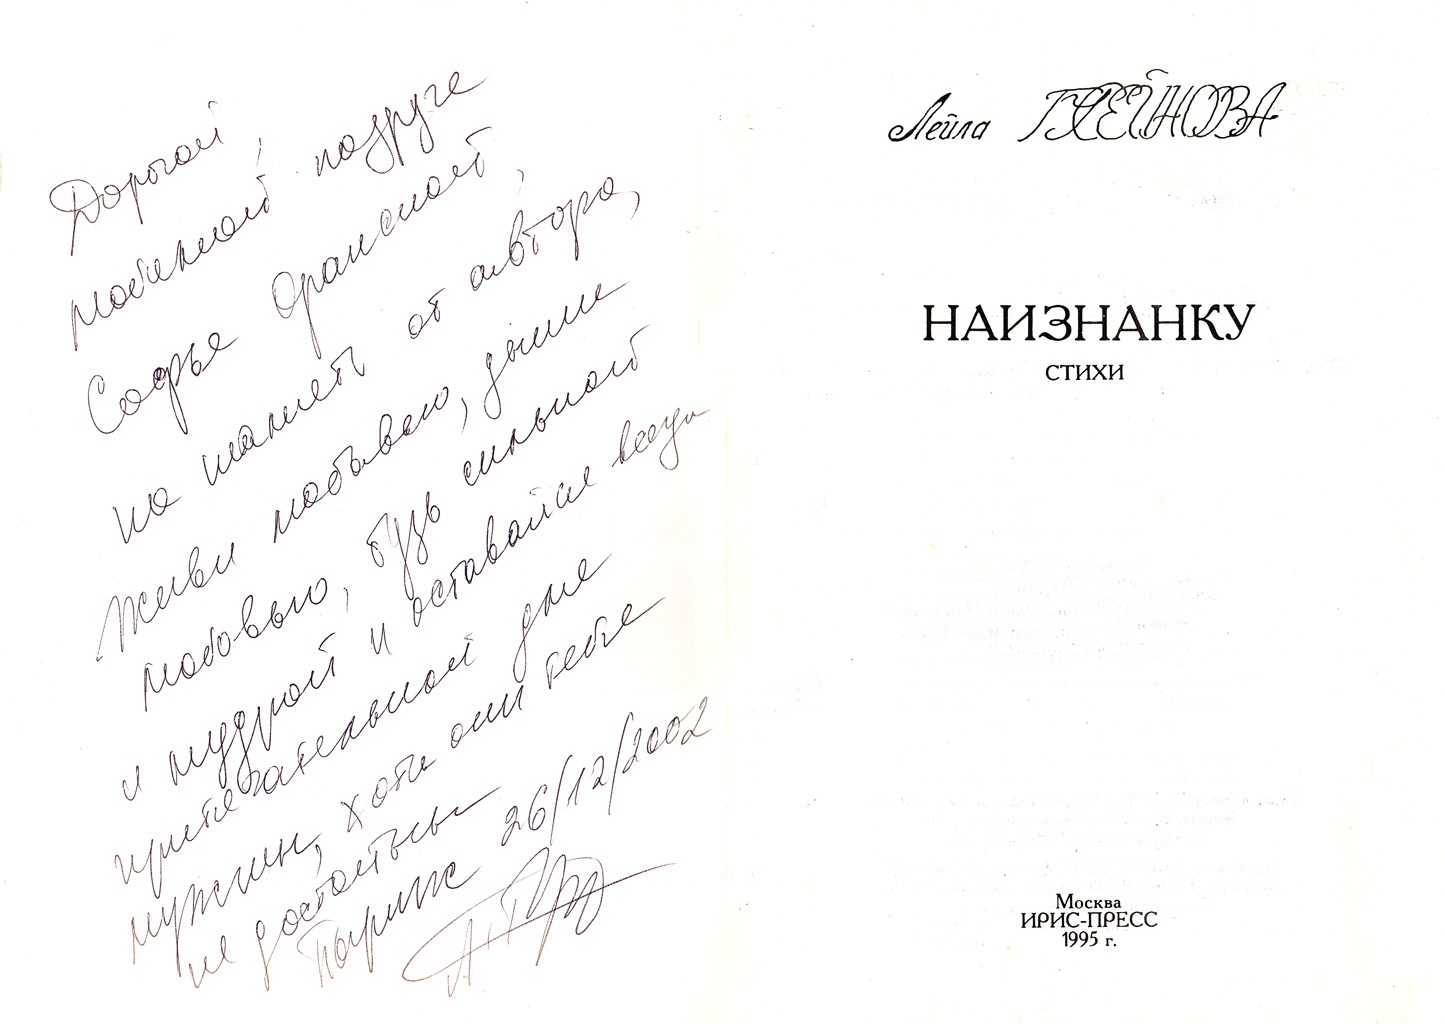 Дорогой,
любимой подруге
Софье Оранской,
на память от автора,
Живи любовью, дыши
любовью, будь сильной
и мудрой и оставайся всегда
притягательной для
мужчин, хотя они тебе
не достойны
Париж 26/12/2002
Лейла
НАИЗНАНКУ
СТИХИ
Москва
ИРИС-ПРЕСС
1995 г.